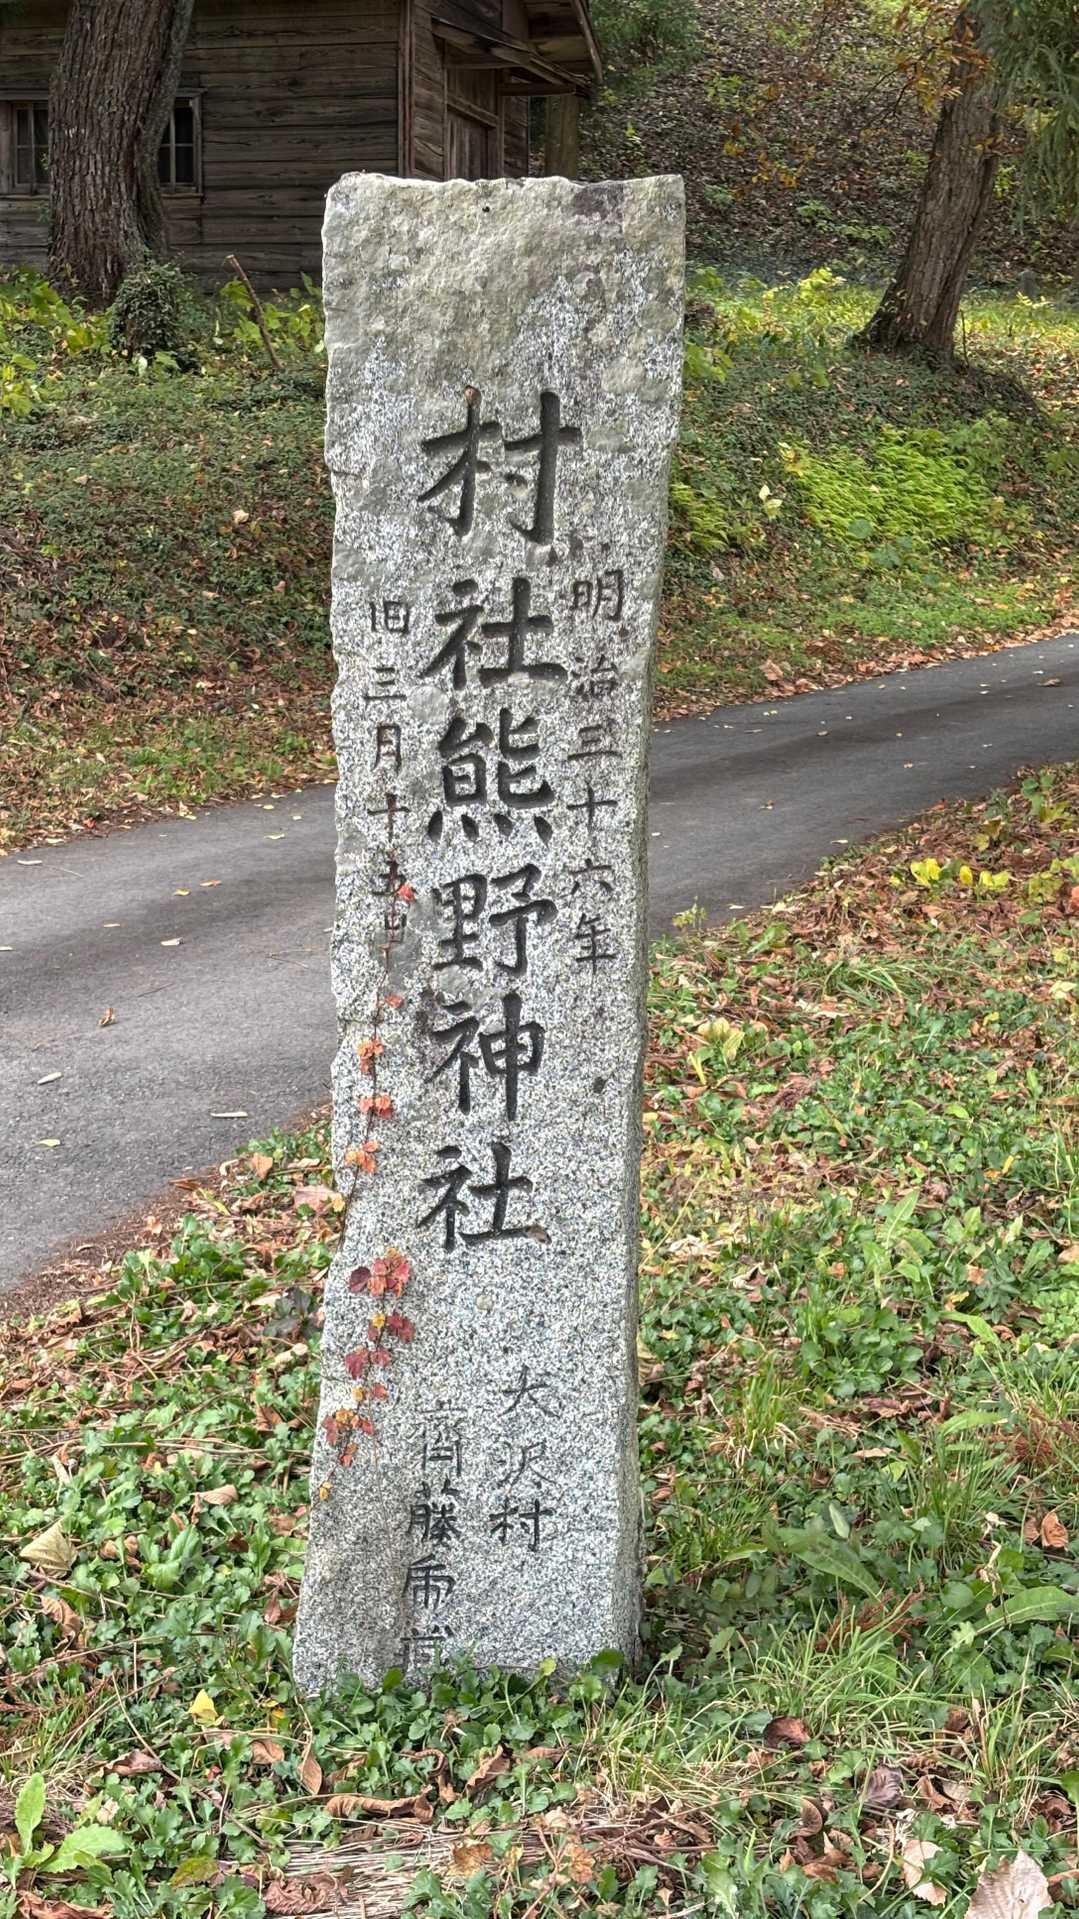 明治三十六年
村社熊野神社
旧三月十五日
大沢村
齊藤